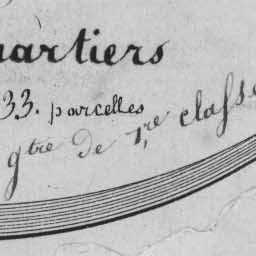 uartiers
33. parcelles
gtre de 1,re classe